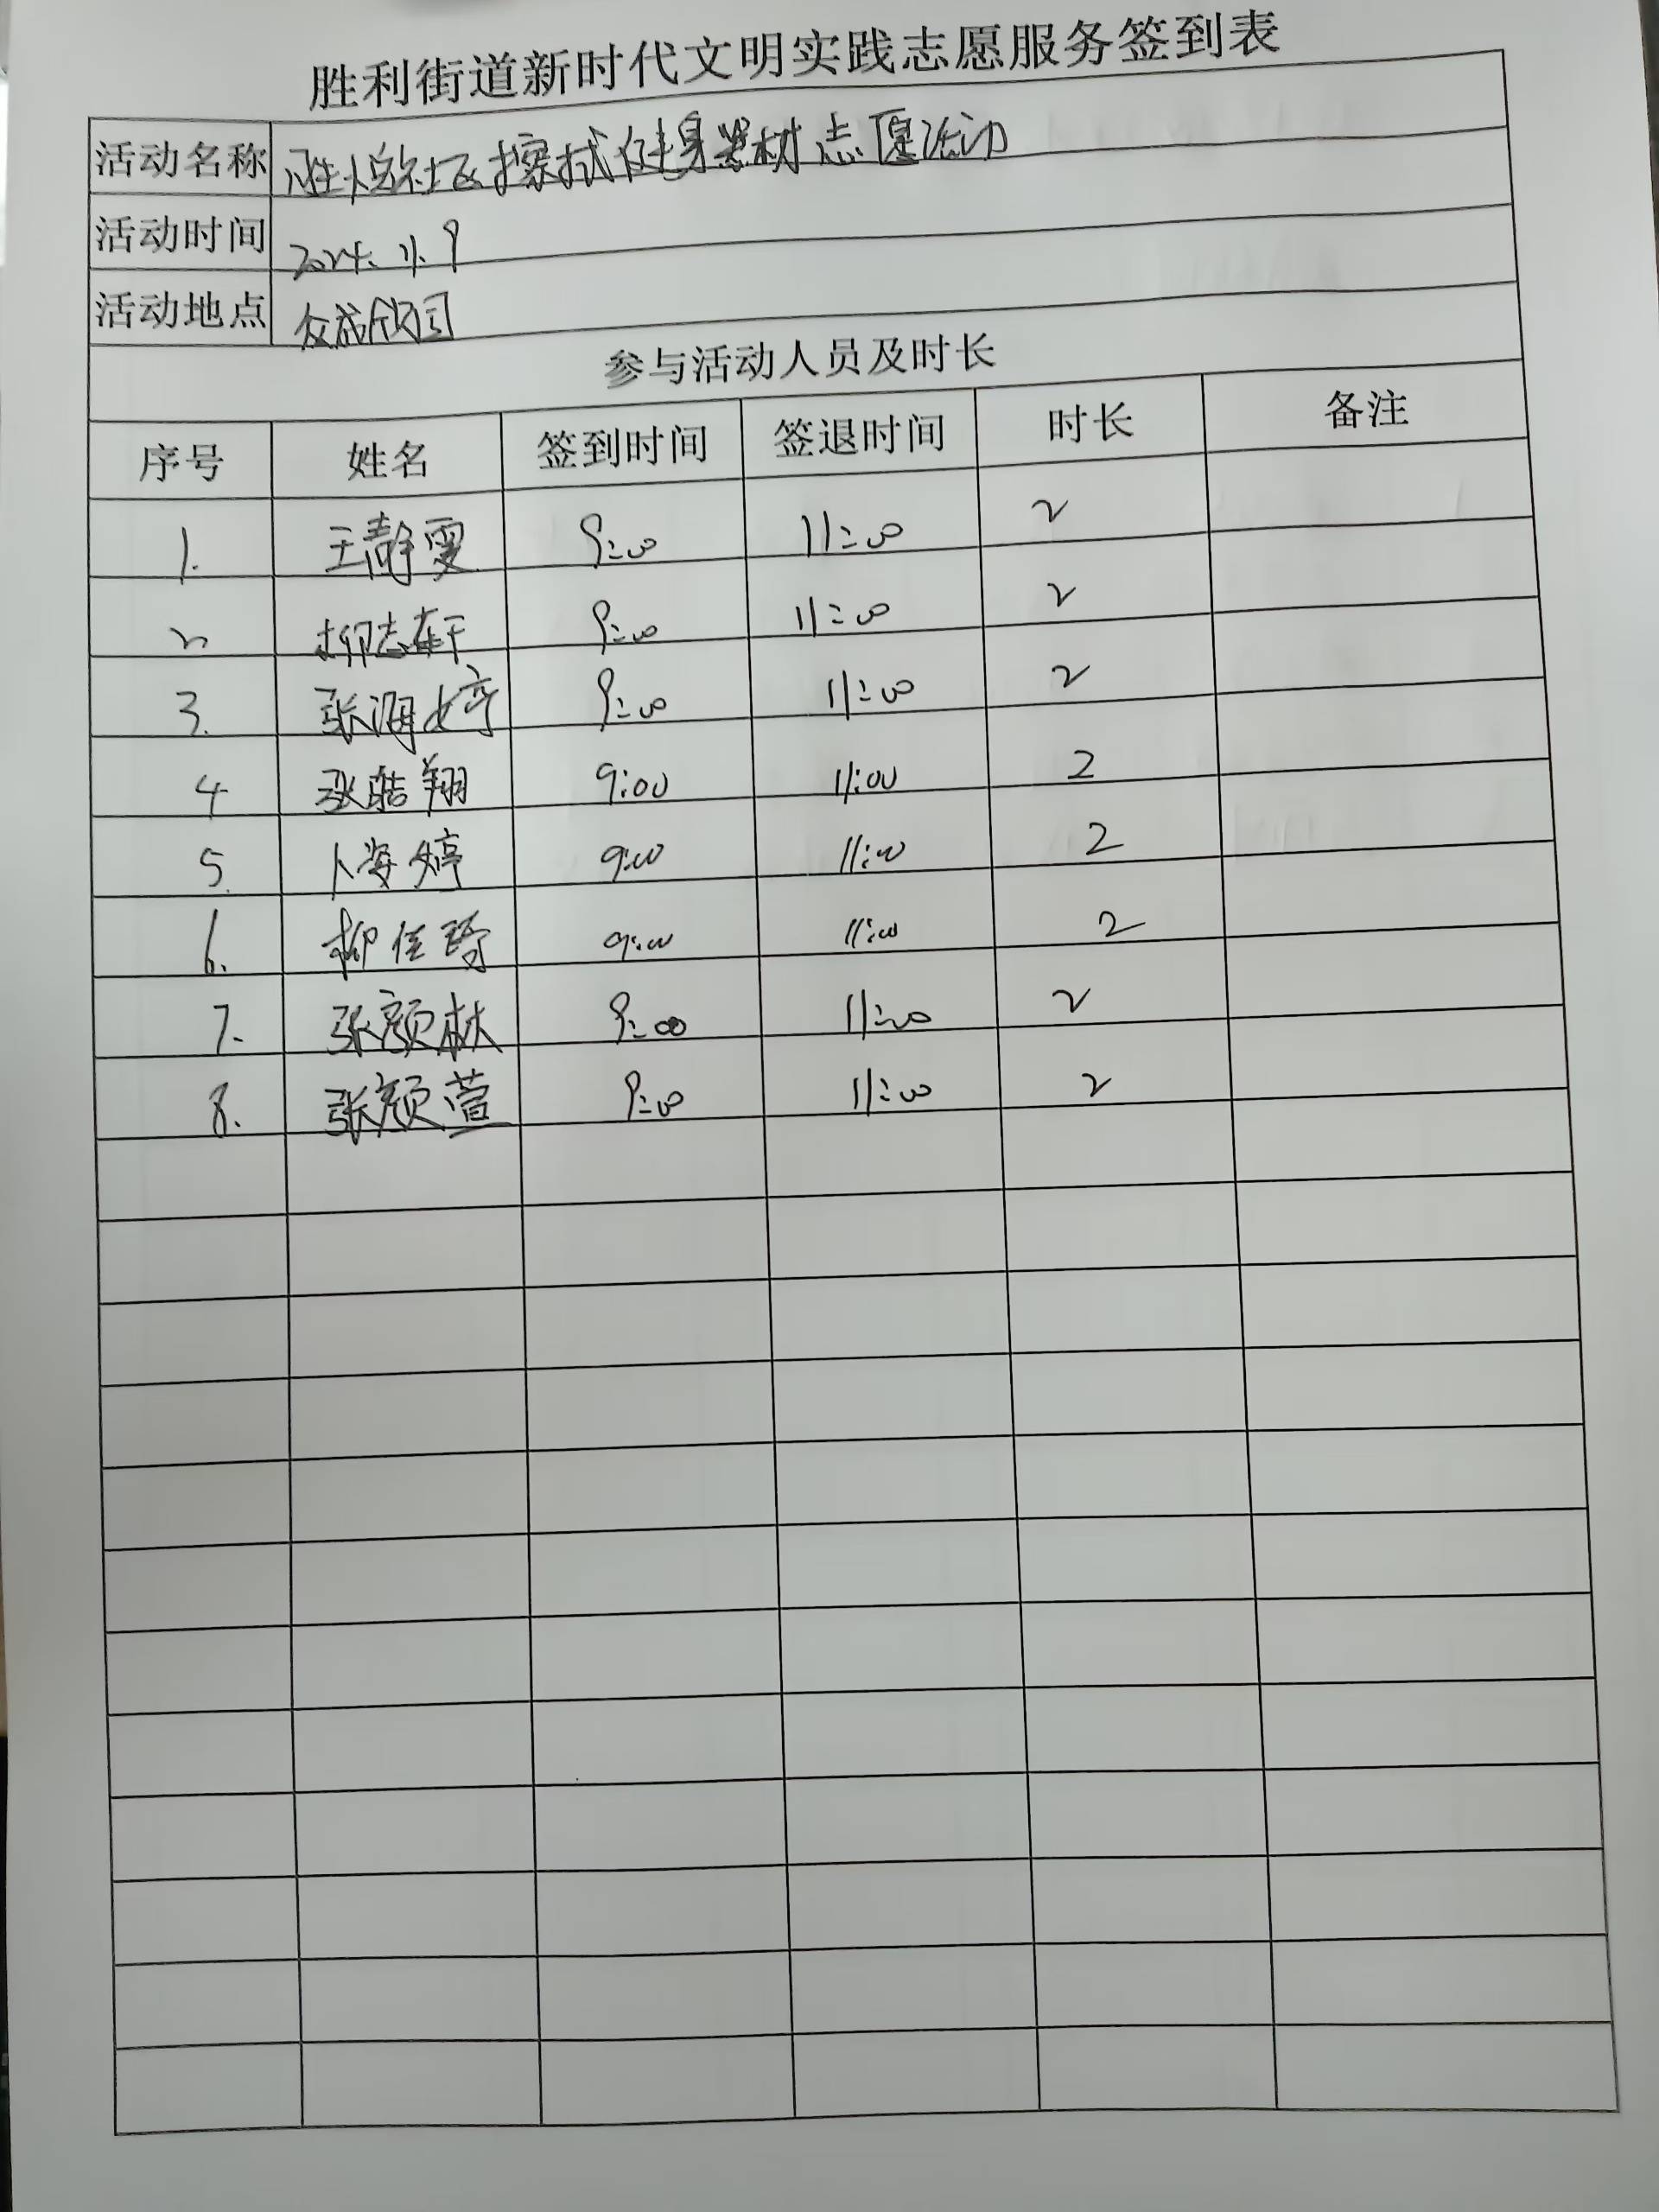 胜利街道新时代文明实践志愿服务签到表
活动名称 胜悦社区擦拭健身器材志愿活动
活动时间 2024.11.9
活动地点 友成欣园
参与活动人员及时长
序号 姓名 签到时间 签退时间 时长 备注
1. 王静雯 9:00 11:00 2
2 柳志轩 9:00 11:00 2
3. 张海婷 9:00 11:00 2
4 张皓翔 9:00 11:00 2
5. 卜姿婷 9:00 11:00 2
6. 柳佳琦 9:00 11:00 2
7. 张颜林 9:00 11:00 2
8. 张颜萱 9:00 11:00 2